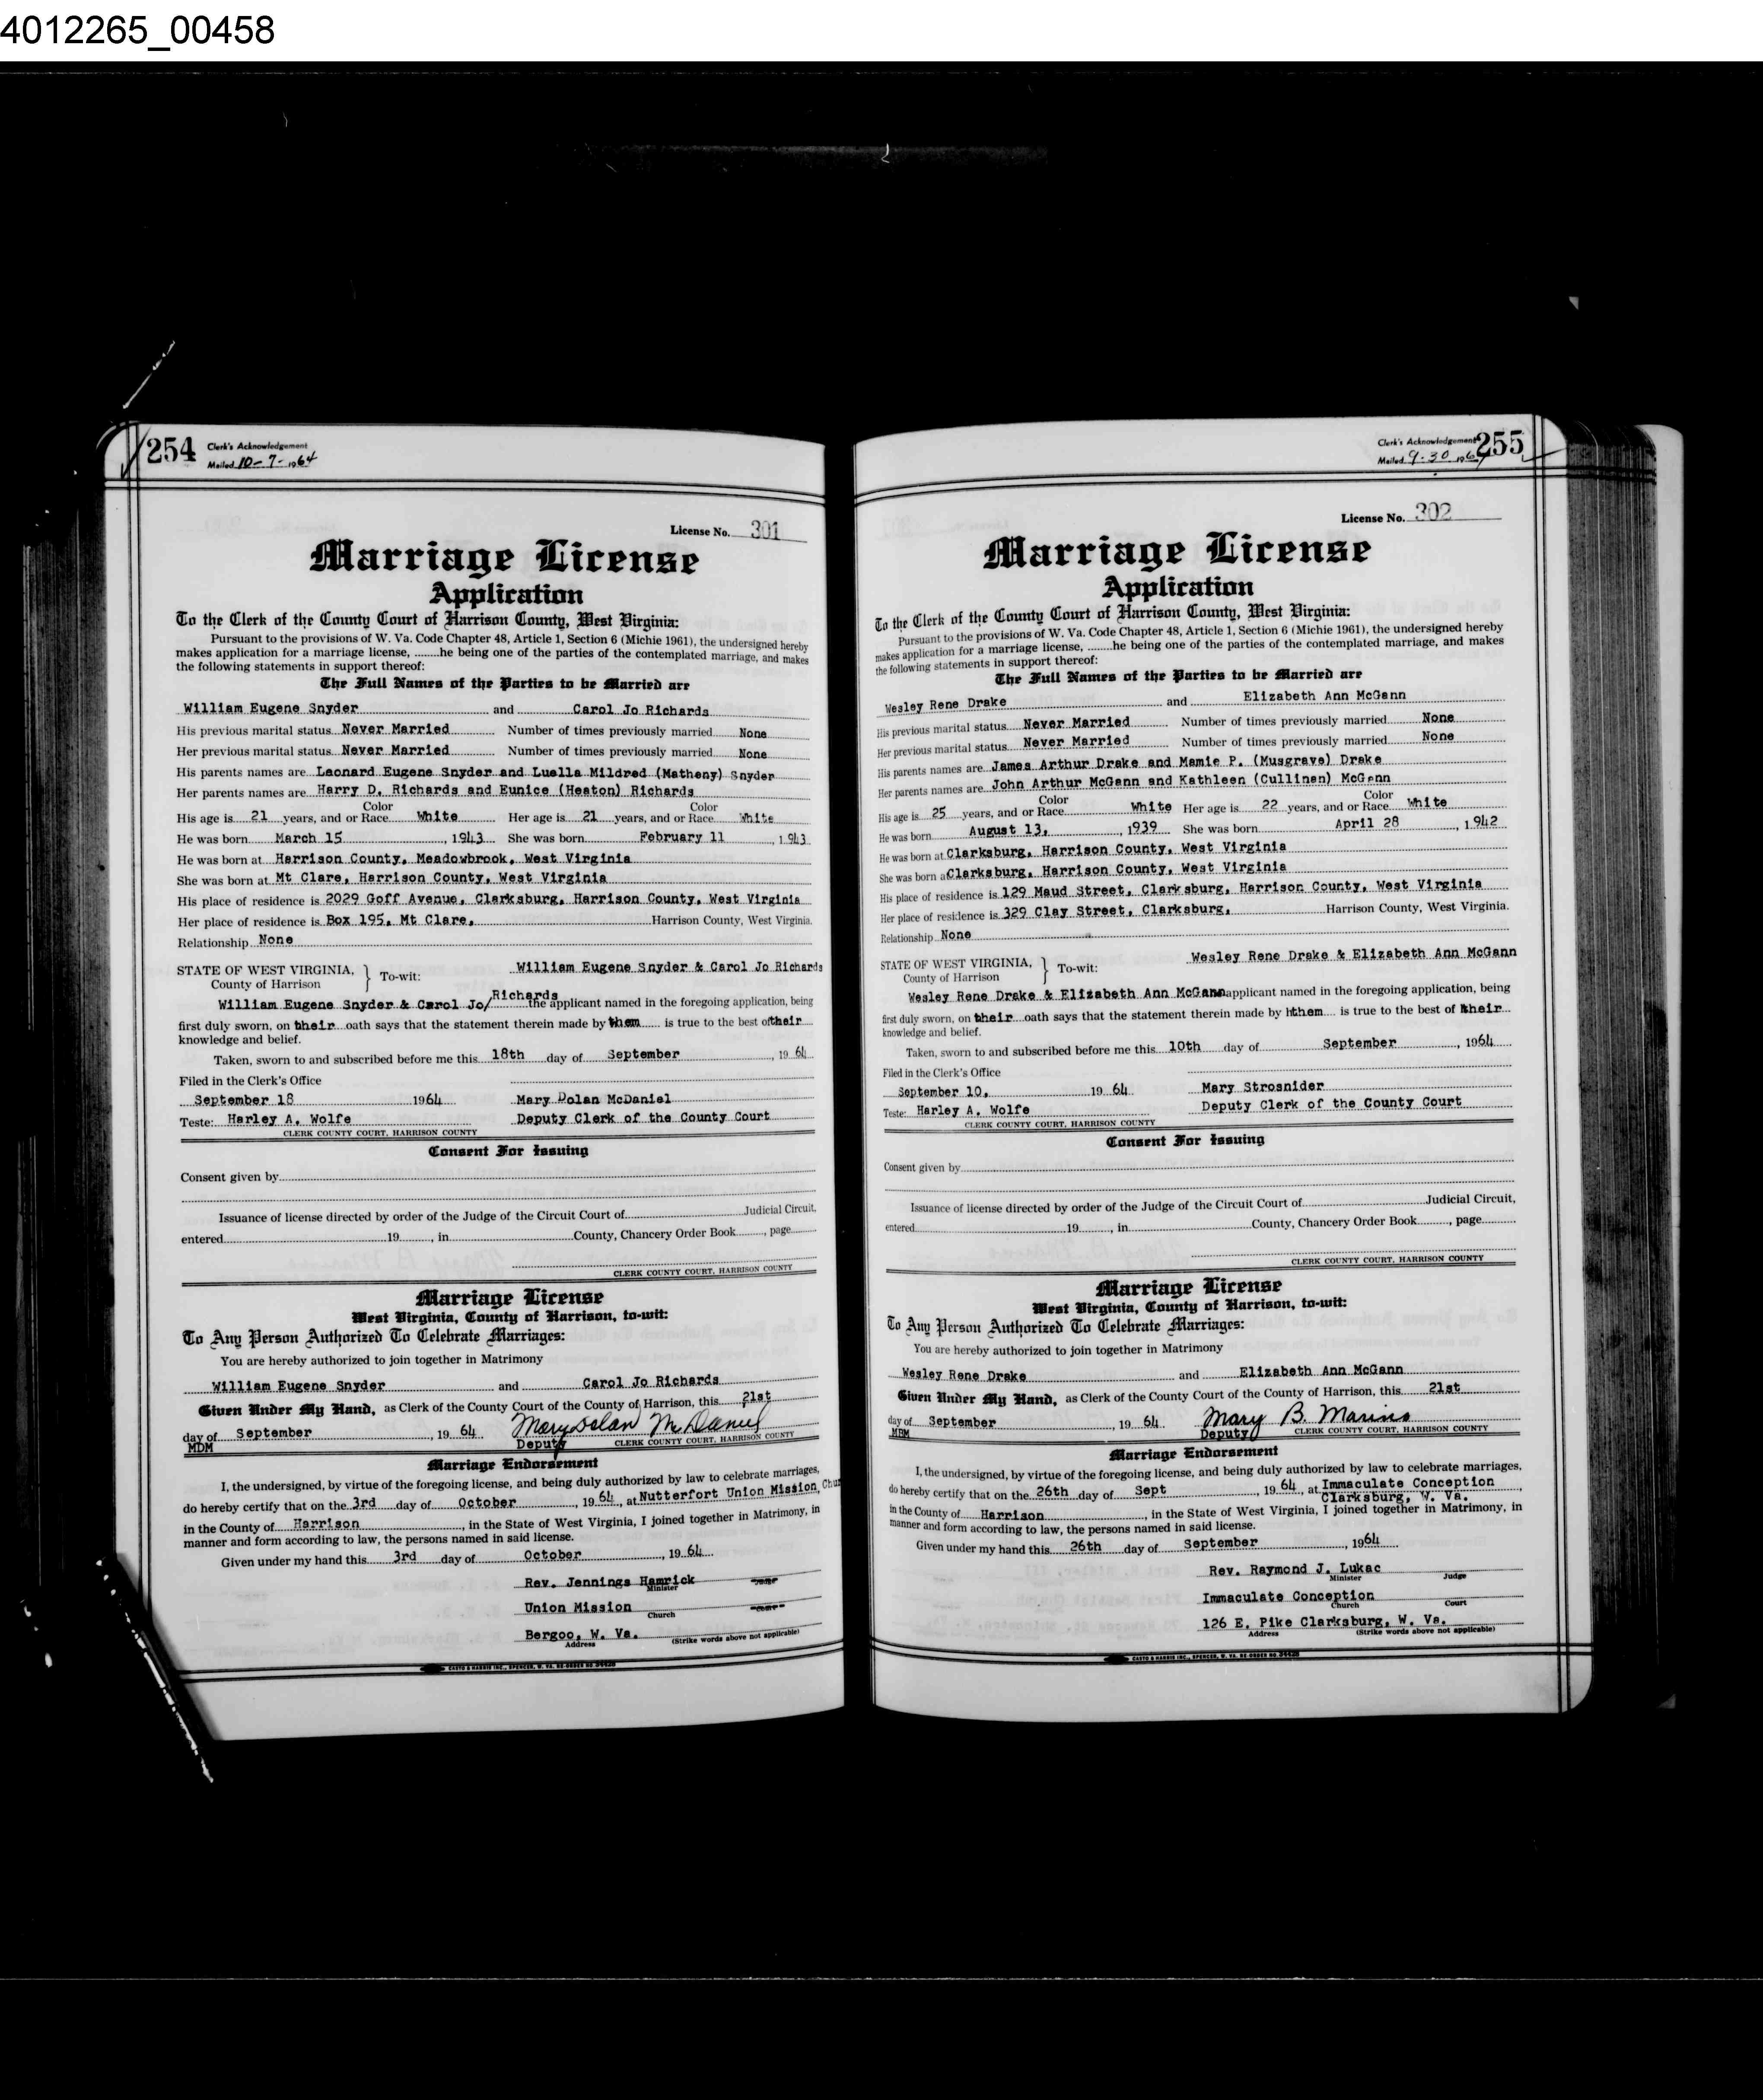 4012265_00458
254 Clerk's Acknowledgement
Mailed 10-7-1964
License No. 301
Marriage License
Application
To the Clerk of the County Court of Harrison County, West Virginia:
Pursuant to the provisions of W. Va. Code Chapter 48, Article 1, Section 6 (Michie 1961), the undersigned hereby
makes application for a marriage license, ........he being one of the parties of the contemplated marriage, and makes
the following statements in support thereof:
The Full Names of the Parties to be Married are
William Eugene Snyder and Carol Jo Richards
His previous marital status Never Married Number of times previously married None
Her previous marital status Never Married Number of times previously married None
His parents names are Leonard Eugene Snyder and Luella Mildred (Matheny) Snyder
Her parents names are Harry D. Richards and Eunice (Heaton) Richards
His age is 21 years, and or Color Race White Her age is 21 years, and or Color Race White
He was born March 15, 1943 She was born February 11, 1943
He was born at Harrison County, Meadowbrook, West Virginia
She was born at Mt Clare, Harrison County, West Virginia
His place of residence is 2029 Goff Avenue, Clarksburg, Harrison County, West Virginia
Her place of residence is Box 195, Mt Clare, Harrison County, West Virginia.
Relationship None
STATE OF WEST VIRGINIA, } To-wit: William Eugene Snyder & Carol Jo Richards
County of Harrison
William Eugene Snyder & Carol Jo/Richards the applicant named in the foregoing application, being
first duly sworn, on their oath says that the statement therein made by them is true to the best of their
knowledge and belief.
Taken, sworn to and subscribed before me this 18th day of September, 1964
Filed in the Clerk's Office
September 18 1964 Mary Dolan McDaniel
Teste: Harley A. Wolfe Deputy Clerk of the County Court
CLERK COUNTY COURT, HARRISON COUNTY
Consent For Issuing
Consent given by
Issuance of license directed by order of the Judge of the Circuit Court of Judicial Circuit,
entered 19, in County, Chancery Order Book, page
CLERK COUNTY COURT, HARRISON COUNTY
Marriage License
West Virginia, County of Harrison, to-wit:
To Any Person Authorized To Celebrate Marriages:
You are hereby authorized to join together in Matrimony
William Eugene Snyder and Carol Jo Richards
Given Under My Hand, as Clerk of the County Court of the County of Harrison, this 21st
day of September, 1964 Mary Dolan McDaniel
MDM Deputy CLERK COUNTY COURT, HARRISON COUNTY
Marriage Endorsement
I, the undersigned, by virtue of the foregoing license, and being duly authorized by law to celebrate marriages,
do hereby certify that on the 3rd day of October, 1964, at Nutterfort Union Mission, Chur
in the County of Harrison, in the State of West Virginia, I joined together in Matrimony, in
manner and form according to law, the persons named in said license.
Given under my hand this 3rd day of October, 1964
Rev. Jennings Hamrick
Minister
Union Mission
Church
Bergoo, W. Va.
Address (Strike words above not applicable)
CASTO & HARRIS INC., SPENCER, W. VA. RE-ORDER NO.
Clerk's Acknowledgement 255
Mailed 9-30 1964
License No. 302
Marriage License
Application
To the Clerk of the County Court of Harrison County, West Virginia:
Pursuant to the provisions of W. Va. Code Chapter 48, Article 1, Section 6 (Michie 1961), the undersigned hereby
makes application for a marriage license, ........he being one of the parties of the contemplated marriage, and makes
the following statements in support thereof:
The Full Names of the Parties to be Married are
Wesley Rene Drake and Elizabeth Ann McGann
His previous marital status Never Married Number of times previously married None
Her previous marital status Never Married Number of times previously married None
His parents names are James Arthur Drake and Mamie P. (Musgrave) Drake
Her parents names are John Arthur McGann and Kathleen (Cullinan) McGann
His age is 25 years, and or Color Race White Her age is 22 years, and or Color Race White
He was born August 13, 1939 She was born April 28, 1942
He was born at Clarksburg, Harrison County, West Virginia
She was born at Clarksburg, Harrison County, West Virginia
His place of residence is 129 Maud Street, Clarksburg, Harrison County, West Virginia
Her place of residence is 329 Clay Street, Clarksburg, Harrison County, West Virginia.
Relationship None
STATE OF WEST VIRGINIA, } To-wit: Wesley Rene Drake & Elizabeth Ann McGann
County of Harrison
Wesley Rene Drake & Elizabeth Ann McGann applicant named in the foregoing application, being
first duly sworn, on their oath says that the statement therein made by them is true to the best of their
knowledge and belief.
Taken, sworn to and subscribed before me this 10th day of September, 1964
Filed in the Clerk's Office
September 10, 1964 Mary Strosnider
Teste: Harley A. Wolfe Deputy Clerk of the County Court
CLERK COUNTY COURT, HARRISON COUNTY
Consent For Issuing
Consent given by
Issuance of license directed by order of the Judge of the Circuit Court of Judicial Circuit,
entered 19, in County, Chancery Order Book, page
CLERK COUNTY COURT, HARRISON COUNTY
Marriage License
West Virginia, County of Harrison, to-wit:
To Any Person Authorized To Celebrate Marriages:
You are hereby authorized to join together in Matrimony
Wesley Rene Drake and Elizabeth Ann McGann
Given Under My Hand, as Clerk of the County Court of the County of Harrison, this 21st
day of September, 1964 Mary B. Marino
MBM Deputy CLERK COUNTY COURT, HARRISON COUNTY
Marriage Endorsement
I, the undersigned, by virtue of the foregoing license, and being duly authorized by law to celebrate marriages,
do hereby certify that on the 26th day of Sept, 1964, at Immaculate Conception
Clarksburg, W. Va.
in the County of Harrison, in the State of West Virginia, I joined together in Matrimony, in
manner and form according to law, the persons named in said license.
Given under my hand this 26th day of September, 1964
Rev. Raymond J. Lukac
Minister Judge
Immaculate Conception
Church Court
126 E. Pike Clarksburg, W. Va.
Address (Strike words above not applicable)
CASTO & HARRIS INC., SPENCER, W. VA. RE-ORDER NO.